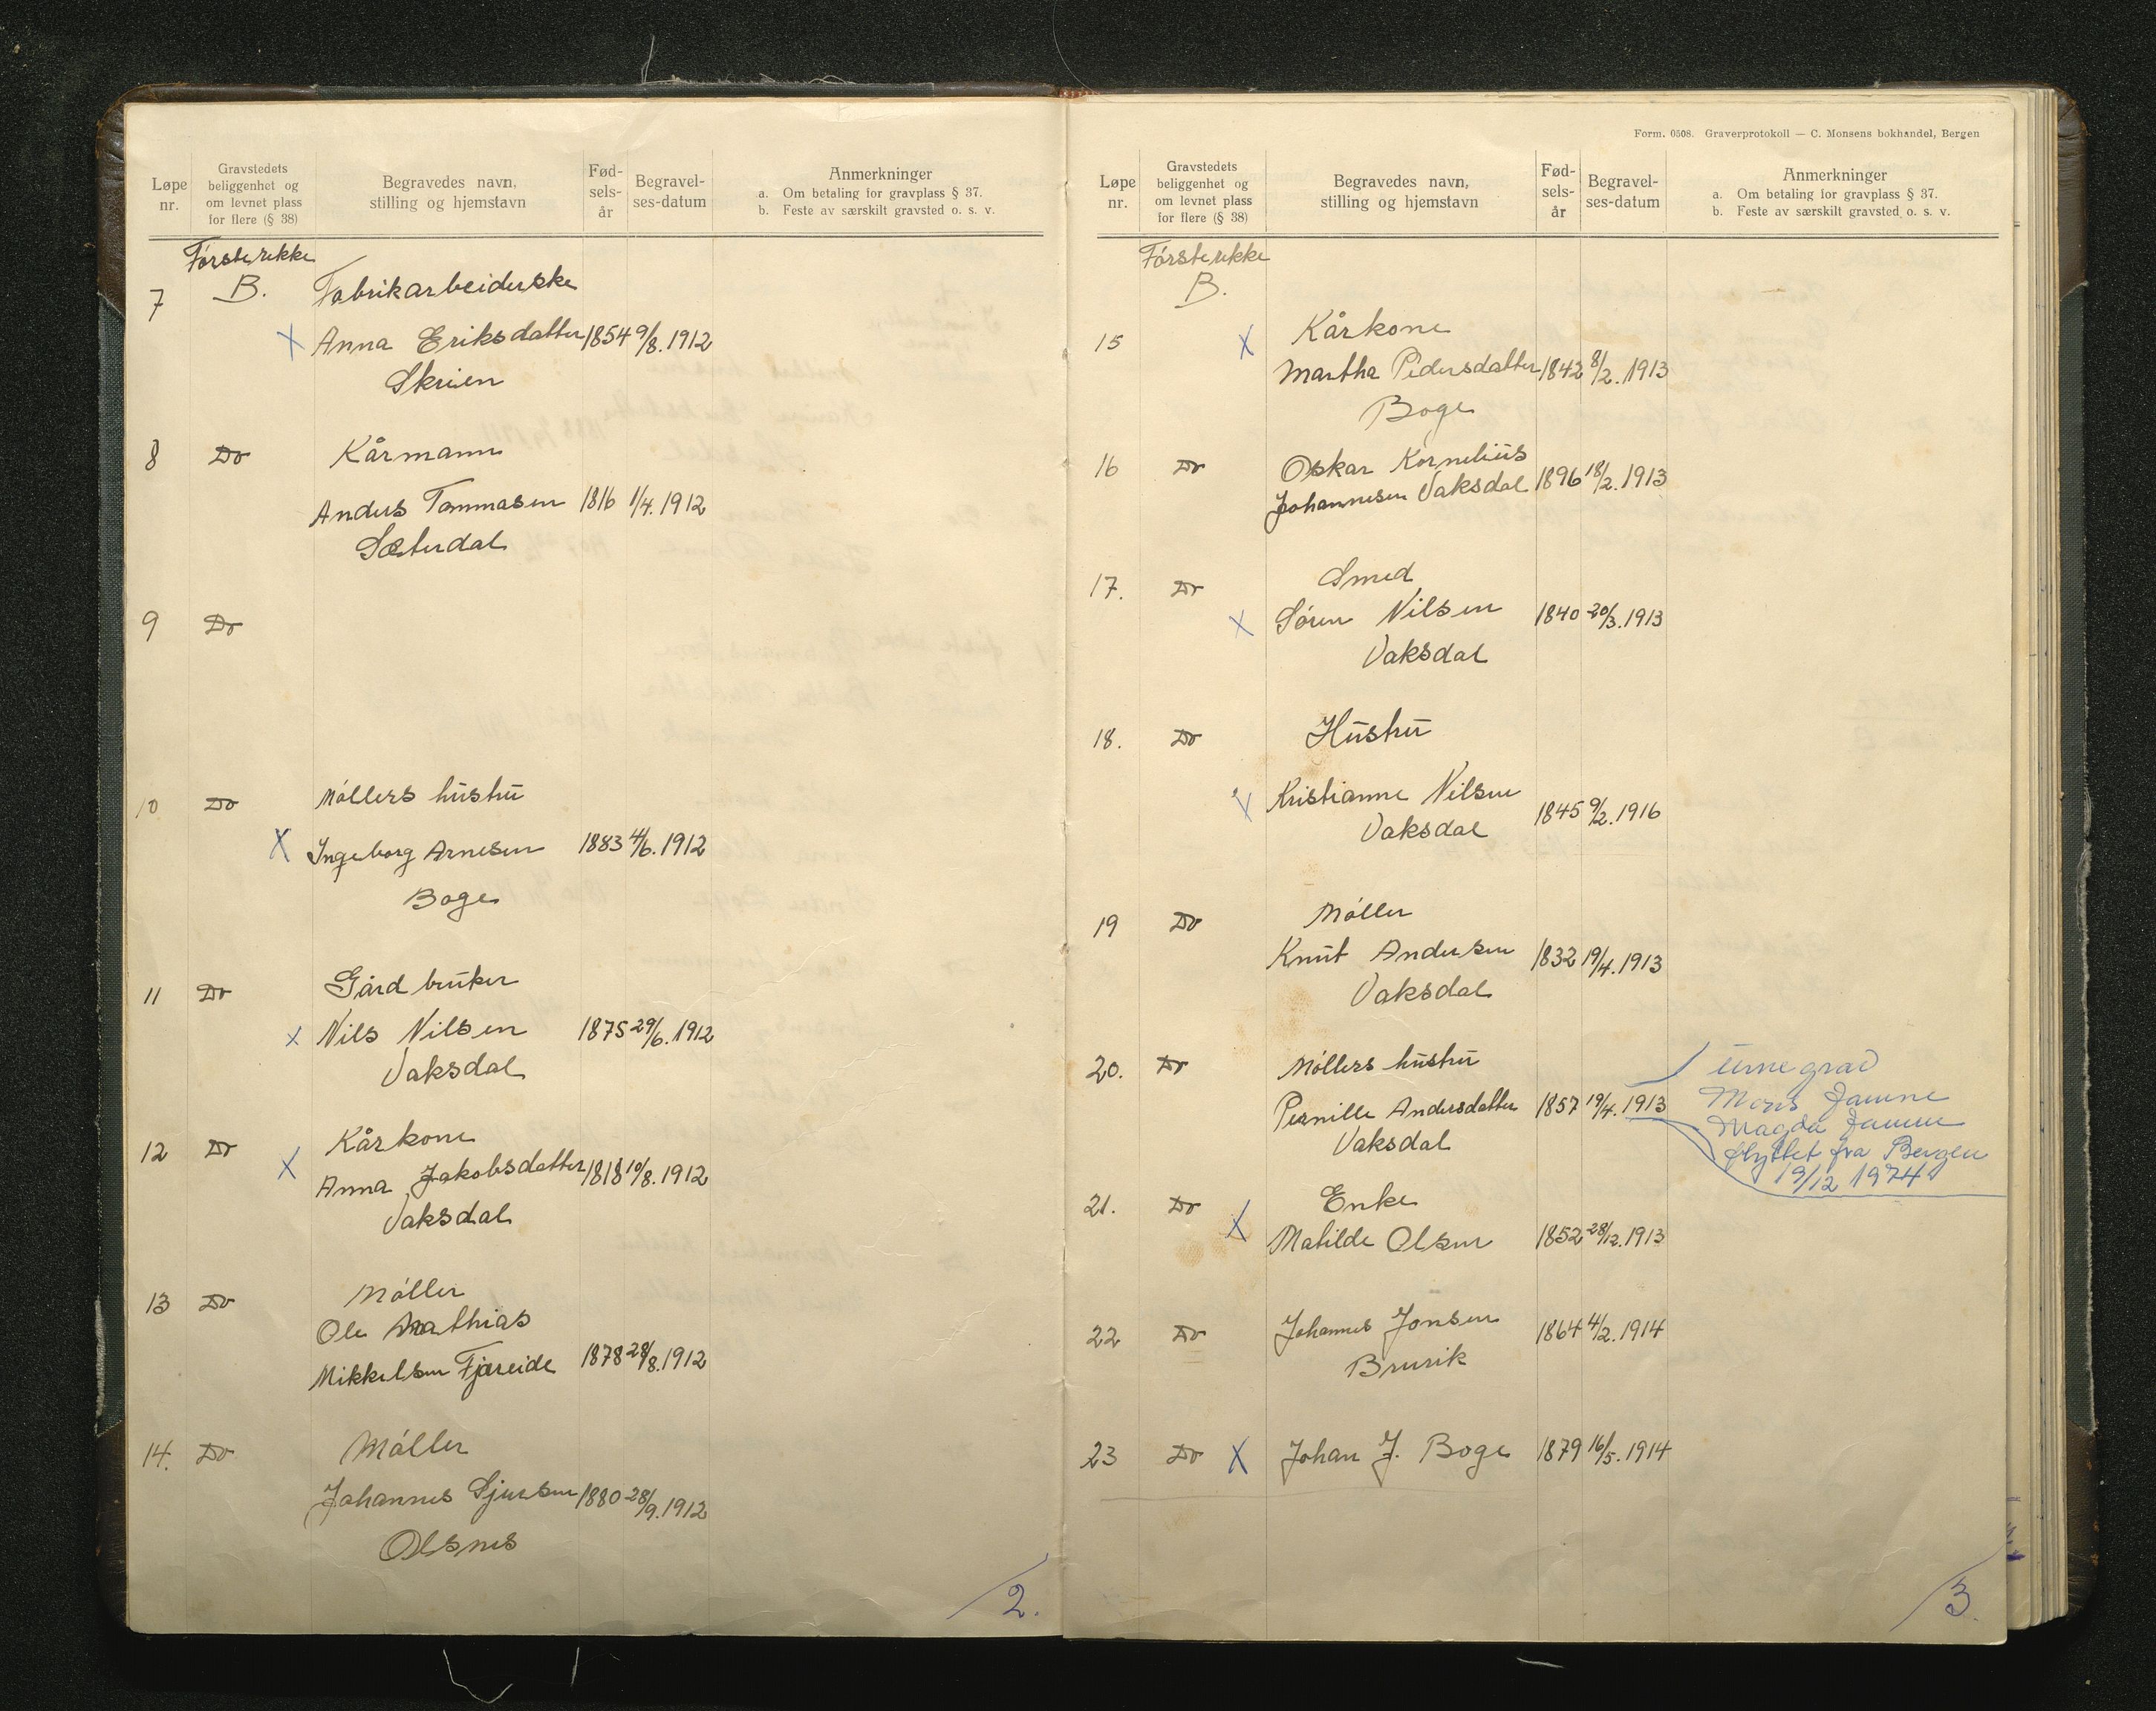 Løpe nr.
Gravstedets beliggenhet og om levnet plass for flere (§ 38)
Begravedes navn, stilling og hjemstavn
Fød-sels-år
Begravel-ses-datum
Anmerkninger
a. Om betaling for gravplass § 37.
b. Feste av særskilt gravsted o. s. v.
Første rekke
7 B. Fabrikarbeiderske
X Anna Eriksdatter 1854 9/8. 1912
Skreien
8 Do Kårmann
Anders Tommasen 1816 1/4. 1912
Sæterdal
9 Do
10 Do Møllers hustru
X Ingeborg Arnesen 1883 4/6. 1912
Boge
11 Do Gårdbruker
X Nils Nilsen 1875 29/6. 1912
Vaksdal
12 Do Kårkone
X Anna Jakobsdatter 1818 10/8. 1912
Vaksdal
13 Do Møller
Ole Mathias
Mikkelsen Fjæreide 1878 28/8. 1912
14. Do Møller
Johannes Sjursen 1880 28/9. 1912
Olsnes
2.
Form. 0508. Graverprotokoll — C. Monsens bokhandel, Bergen
Løpe nr.
Gravstedets beliggenhet og om levnet plass for flere (§ 38)
Begravedes navn, stilling og hjemstavn
Fød-sels-år
Begravel-ses-datum
Anmerkninger
a. Om betaling for gravplass § 37.
b. Feste av særskilt gravsted o. s. v.
Første rekke
B.
15 X Kårkone
Martha Pedersdatter 1842 8/2. 1913
Boge
16 Do Oskar Kornelius
Johannesen Vaksdal 1896 18/2. 1913
17. Do Smed
X Søren Nilsen 1840 20/3. 1913
Vaksdal
18. Do Hustru
X Kristianne Nilsen
Vaksdal 1845 9/2. 1916
19 Do Møller
Knut Andersen 1832 19/4. 1913
Vaksdal
20. Do Møllers hustru
Pernille Andersdatter 1857 19/4. 1913
Vaksdal
urnegrav
Mons Jamne
Magda Jamne
flyttet fra Bergen
19/12 1974
21. Do Enke
X Matilde Olsen 1852 28/12. 1913
22 Do Johannes Jonsen 1864 4/2. 1914
Brurik
23 Do X Johan J. Boge 1879 16/5. 1914
3.